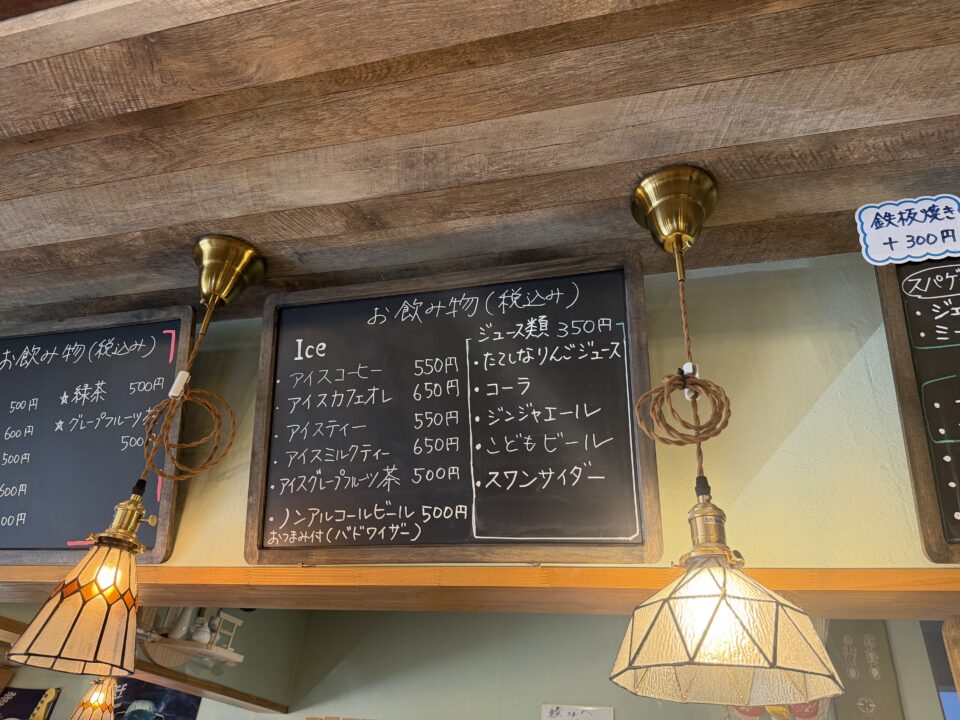 お飲み物(税込み)
500円
600円
500円
600円
00円
★緑茶 500円
★グレープフルーツ茶
500
お飲み物(税込み)
Ice
・アイスコーヒー 550円
・アイスカフェオレ 650円
・アイスティー 550円
・アイスミルクティー 650円
・アイスグレープフルーツ茶 500円
・ノンアルコールビール 500円
おつまみ付(バドワイザー)
ジュース類 350円
・たてしなりんごジュース
・コーラ
・ジンジャエール
・こどもビール
・スワンサイダー
鉄板焼き
+300円
スパゲ
・ジェ
・ミー